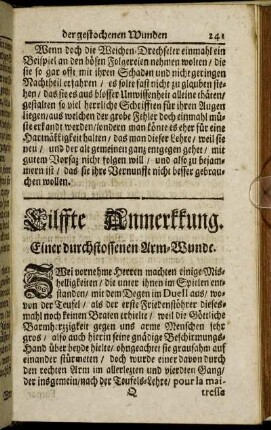 der gestochenen Wunden 241
Wenn doch die Weichen-Drechseler einmahl ein
Beispiel an den bösen Folgereien nehmen wolten / die
sie so gar offt mit ihren Schaden und nicht geringen
Nachtheil erfahren / es solte fast nicht zu glauben ste-
hen / das sie es aus blosser Unwissenheit alleine thäten/
gestalten so viel herrliche Schrifften für ihren Augen
ligen/aus welchen der grobe Fehler doch einmahl mü-
ste erkand werden/sondern man könte es eher für eine
Harnäkkigkeit halten / das man dieser Lehre / weil sie
neu / und der algemeinen ganz entgegen gehet / mit
gutem Vorsaz nicht folgen will / und also zu bejam-
mern ist / das sie ihre Vernunfft nicht besser gebrau-
chen wollen.
Eilffte Anmerkkung.
Einer durchstossenen Arm-Wunde.
ZWei vornehme Herren machten einige Mis-
helligkeiten / die unter ihnen im Spielen ent-
standen / mit dem Degen im Duell aus / wo-
von der Teufel / als der erste Friedensstöhrer dieses-
mahl noch keinen Braten erhielte / weil die Göttliche
Barmherzigkeit gegen uns arme Menschen sehr
gros / also auch hierin seine gnädige Beschirmungs-
Hand über beyde hielte/ ohngeachtet sie grausahm auf
einander stürmeten / doch wurde einer davon durch
den rechten Arm im allerlezten und vierdten Gang/
der insgemein/nach der Teufels-Lehre / pour la mai-
Q tresse